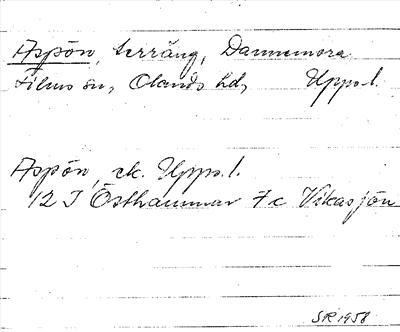 Aspön, terräng, Dannemora
Films sn, Olands hd, Upps.l.
Aspön, ek. Upps.l.
12 I Östhammar 7c Vikasjön
SR 1958